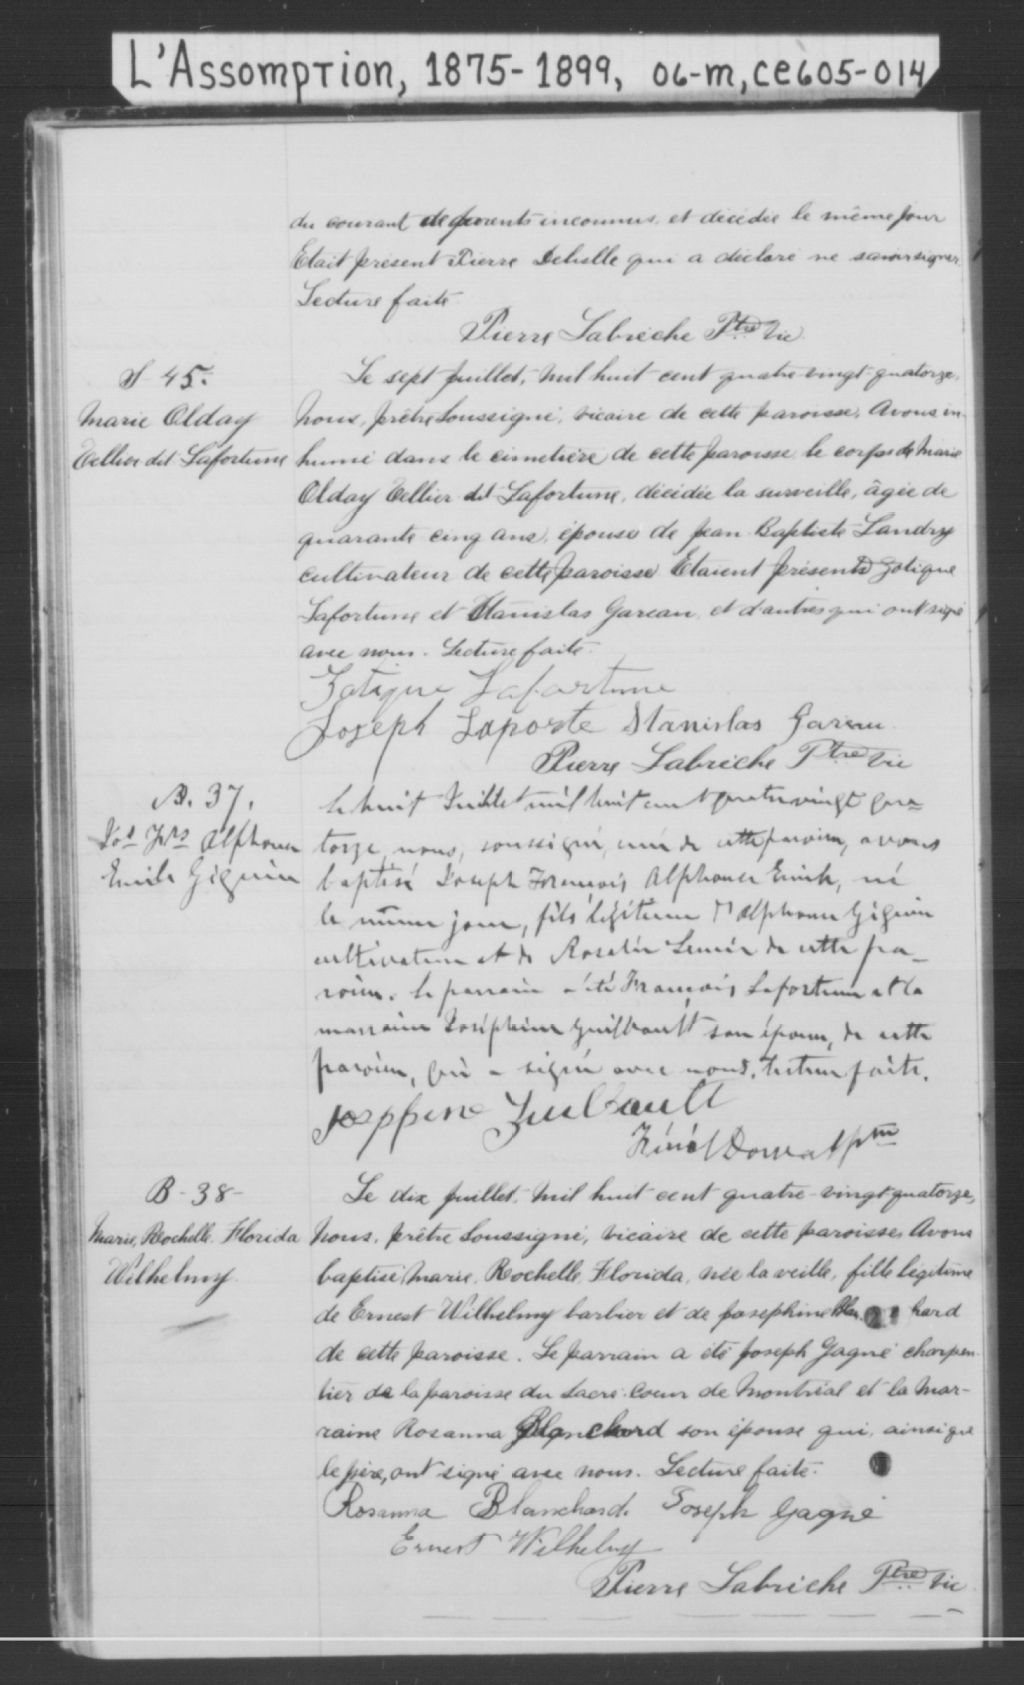 L'Assomption, 1875-1899, 06-m, ce605-014
du courant de parents inconnus, et décédée le même jour
Etait présent Pierre Delisle qui a déclaré ne savoir signer.
Lecture faite.
Pierre Labrèche Ptre Vic.
S 45.
Marie Olday
Tellier dit Lafortune
Le sept juillet, mil huit cent quatre-vingt quatorze,
Nous, prêtre soussigné, vicaire de cette paroisse, Avons in-
humé dans le cimetière de cette paroisse le corps de Marie
Olday Tellier dit Lafortune, décédée la surveille, âgée de
quarante cinq ans, épouse de Jean-Baptiste Landry
cultivateur de cette paroisse Etaient présents Zotique
Lafortune et Stanislas Gareau, et d'autres qui ont signé
avec nous. Lecture faite.
Zotique Lafortune
Joseph Laporte Stanislas Gareau
Pierre Labrèche Ptre Vic
B. 37.
Jos Frs Alphonse
Emile Giguère
le huit Juillet mil huit cent quatre vingt qua-
torze, nous, soussigné, curé de cette paroisse, avons
baptisé Joseph François Alphonse Emile, né
le même jour, fils légitime d'Alphonse Giguère
cultivateur et de Rosalie de cette pa-
roisse. le parrain a été François Lafortune et la
marraine Joséphine Guilbault son épouse, de cette
paroisse, qui a signé avec nous. Lecture faite.
Josephine Guilbault
Dorval ptre
B-38-
Marie, Rochelle, Florida
Wilhelmy.
Le dix juillet, mil huit cent quatre-vingt-quatorze,
Nous, prêtre soussigné, vicaire de cette paroisse, Avons
baptisé Marie, Rochelle, Florida, née la veille, fille légitime
de Ernest Wilhelmy barbier et de Josephine Blan hard
de cette paroisse. Le parrain a été Joseph Gagné charpen-
tier de la paroisse du Sacré-Coeur de Montréal et la Mar-
raine Rosanna Blanchard son épouse qui, ainsi que
le père, ont signé avec nous. Lecture faite.
Rosanna Blanchard. Joseph Gagné
Ernest Wilhelmy
Pierre Labrèche Ptre Vic